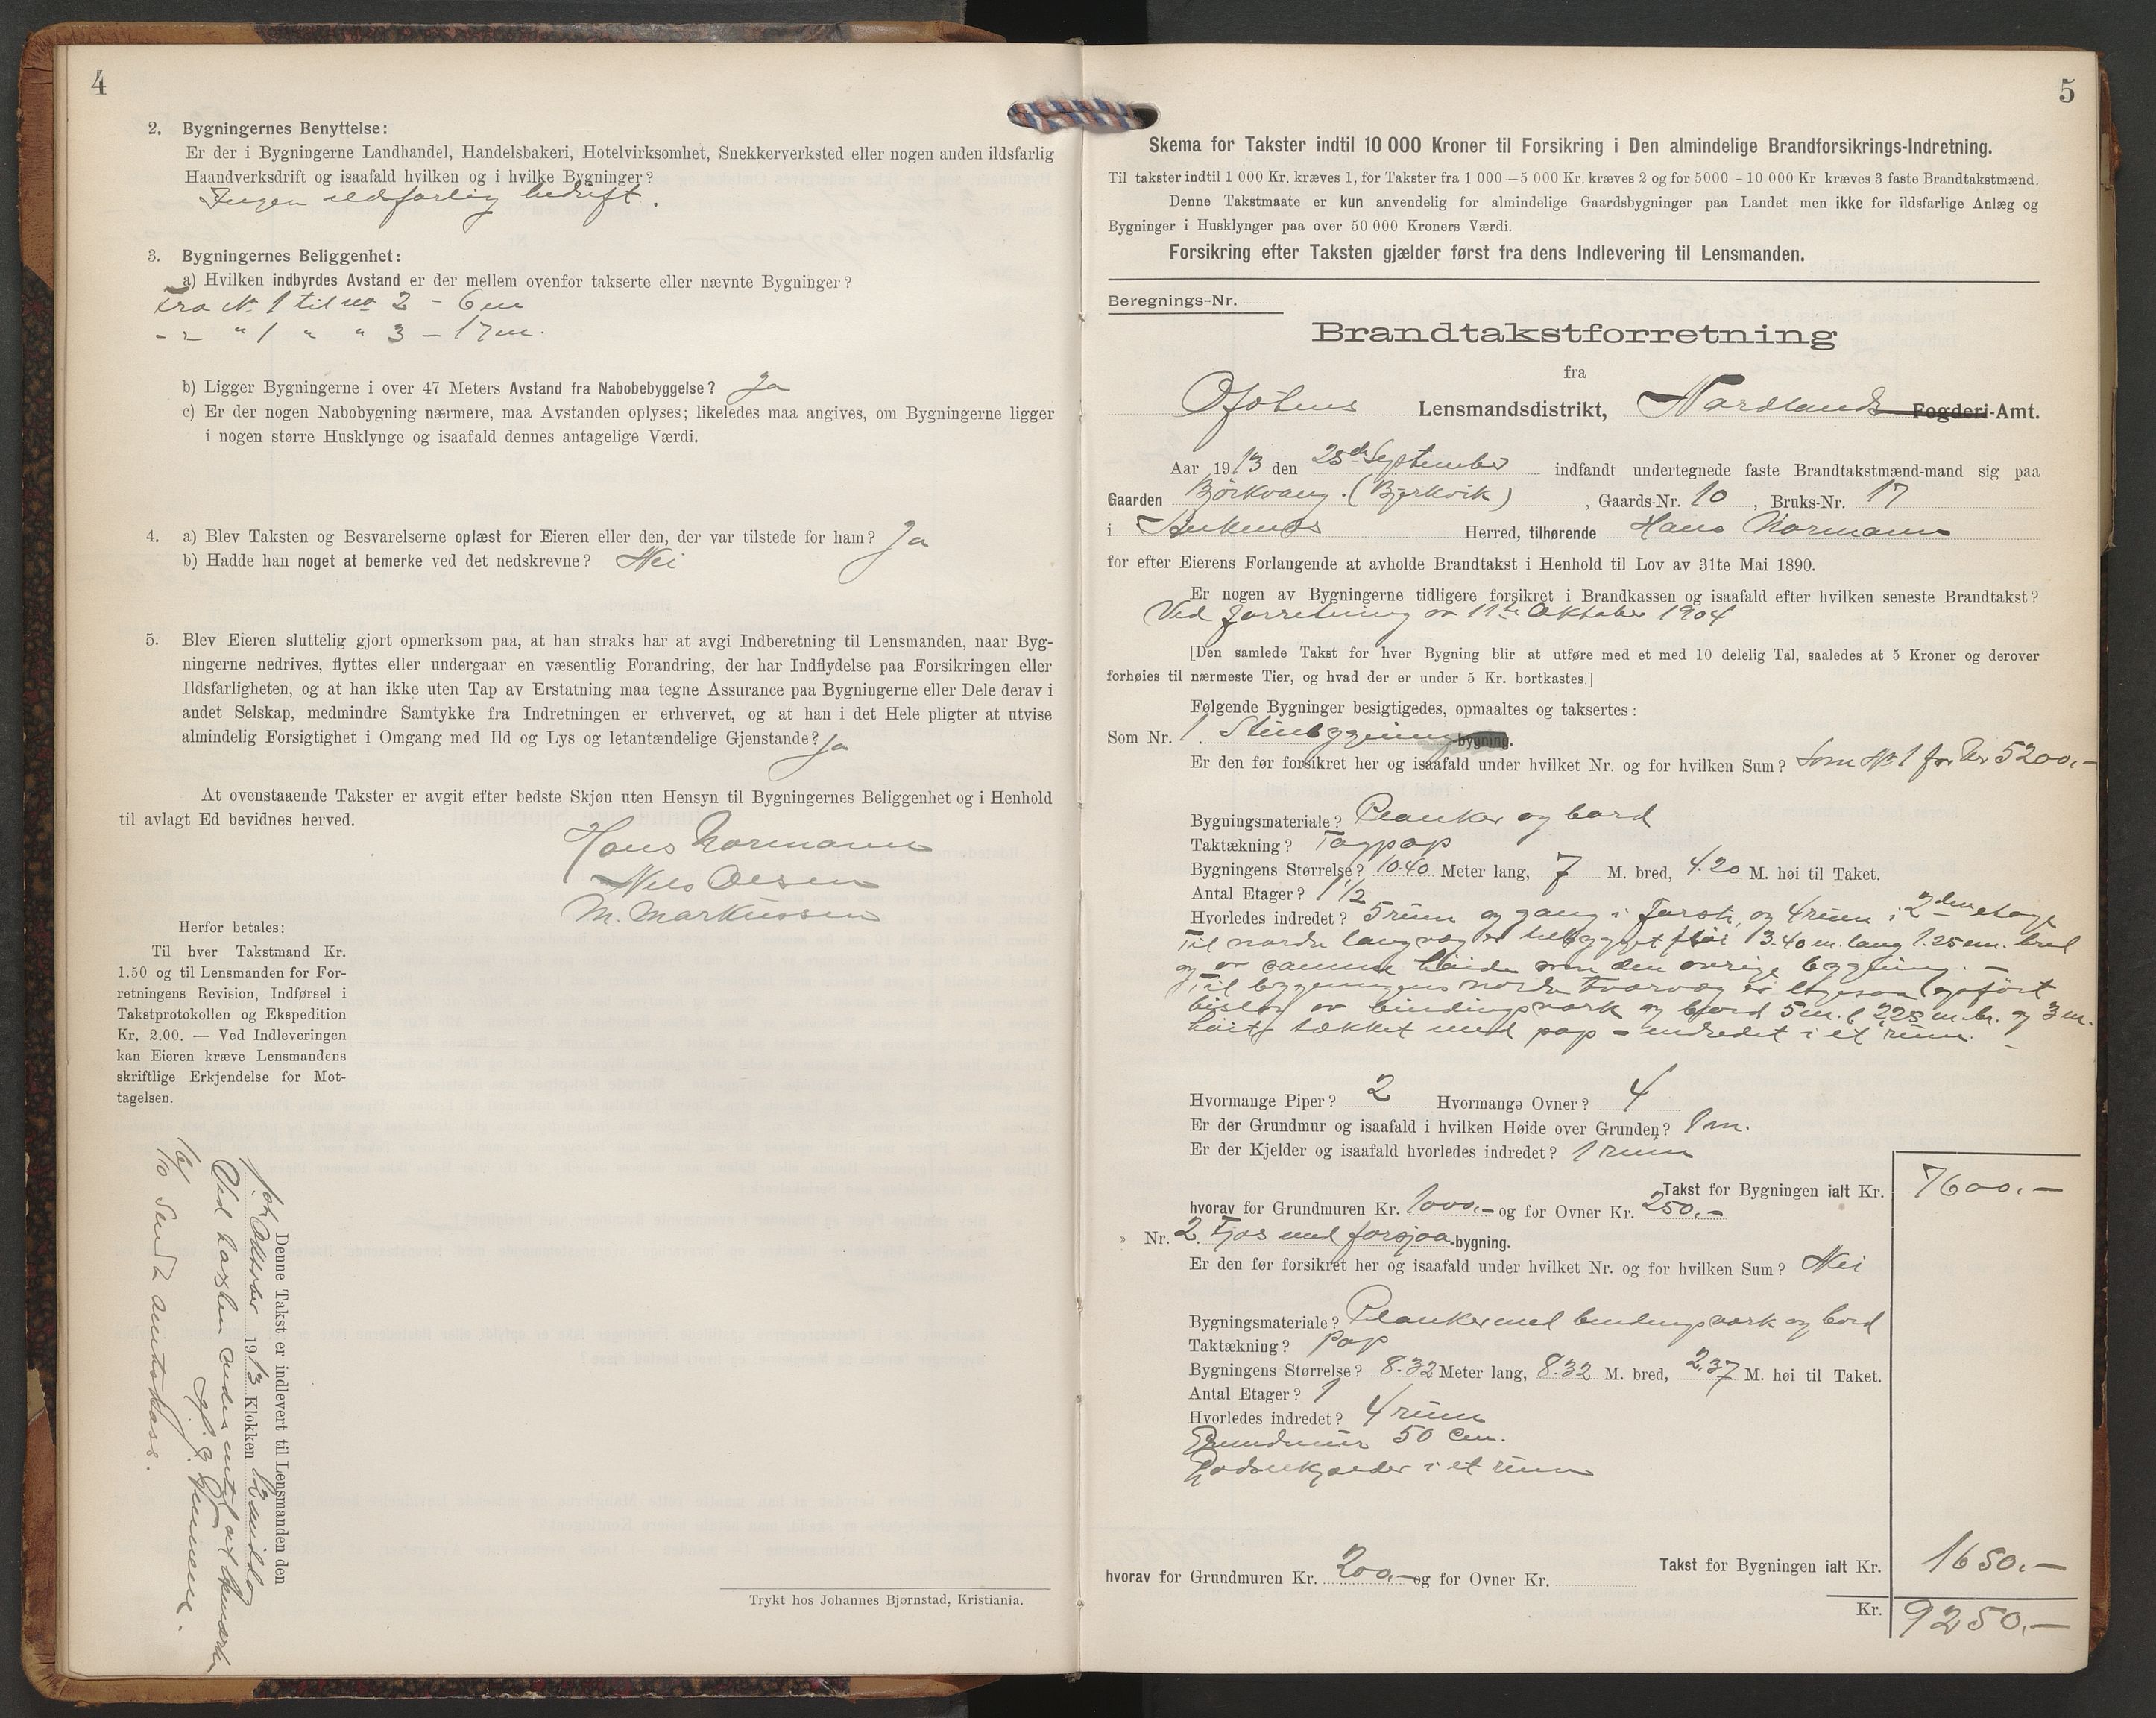 4
2. Bygningernes Benyttelse:
Er der i Bygningerne Landhandel, Handelsbakeri, Hotelvirksomhet, Snekkerverksted eller nogen anden ildsfarlig
Haandverksdrift og isaafald hvilken og i hvilke Bygninger?
Ingen ildsfarlig bedrift.
3. Bygningernes Beliggenhet:
a) Hvilken indbyrdes Avstand er der mellem ovenfor takserte eller nævnte Bygninger?
Fra No 1 til no 2 - 6 m
- " - " 1 " " 3 - 17 m.
b) Ligger Bygningerne i over 47 Meters Avstand fra Nabobebyggelse? Ja
c) Er der nogen Nabobygning nærmere, maa Avstanden oplyses; likeledes maa angives, om Bygningerne ligger
i nogen større Husklynge og isaafald dennes antagelige Værdi.
4. a) Blev Taksten og Besvarelserne oplæst for Eieren eller den, der var tilstede for ham? Ja
b) Hadde han noget at bemerke ved det nedskrevne? Nei
5. Blev Eieren sluttelig gjort opmerksom paa, at han straks har at avgi Indberetning til Lensmanden, naar Byg-
ningerne nedrives, flyttes eller undergaar en væsentlig Forandring, der har Indflydelse paa Forsikringen eller
Ildsfarligheten, og at han ikke uten Tap av Erstatning maa tegne Assurance paa Bygningerne eller Dele derav i
andet Selskap, medmindre Samtykke fra Indretningen er erhvervet, og at han i det Hele pligter at utvise
almindelig Forsigtighet i Omgang med Ild og Lys og letantændelige Gjenstande? Ja
At ovenstaaende Takster er avgit efter bedste Skjøn uten Hensyn til Bygningernes Beliggenhet og i Henhold
til avlagt Ed bevidnes herved.
Hans Normann
Nils Olsen
M. Markussen
Herfor betales:
Til hver Takstmand Kr.
1.50 og til Lensmanden for For-
retningens Revision, Indførsel i
Takstprotokollen og Ekspedition
Kr. 2.00. — Ved Indleveringen
kan Eieren kræve Lensmandens
skriftlige Erkjendelse for Mot-
tagelsen.
Denne Takst er indlevert til Lensmanden den
Oktober 1913 Klokken 12 middag
Ved taxten intet at bemærke
16/10 Sendt amtskass.
Trykt hos Johannes Bjørnstad, Kristiania.
5
Skema for Takster indtil 10 000 Kroner til Forsikring i Den almindelige Brandforsikrings-Indretning.
Til takster indtil 1 000 Kr. kræves 1, for Takster fra 1 000—5 000 Kr. kræves 2 og for 5000 - 10 000 Kr kræves 3 faste Brandtakstmænd.
Denne Takstmaate er kun anvendelig for almindelige Gaardsbygninger paa Landet men ikke for ildsfarlige Anlæg og
Bygninger i Husklynger paa over 50 000 Kroners Værdi.
Forsikring efter Taksten gjælder først fra dens Indlevering til Lensmanden.
Beregnings-Nr.
Brandtakstforretning
fra
Ofotens Lensmandsdistrikt, Nordlands Fogderi-Amt.
Aar 1913 den 25de September indfandt undertegnede faste Brandtakstmænd-mand sig paa
Gaarden Björkvang. (Bjerkvik), Gaards-Nr. 10, Bruks-Nr. 17
i Ankenes Herred, tilhørende Hans Normann
for efter Eierens Forlangende at avholde Brandtakst i Henhold til Lov av 31te Mai 1890.
Er nogen av Bygningerne tidligere forsikret i Brandkassen og isaafald efter hvilken seneste Brandtakst?
Ved forretning av 11te Oktober 1904
[Den samlede Takst for hver Bygning blir at utføre med et med 10 delelig Tal, saaledes at 5 Kroner og derover
forhøies til nærmeste Tier, og hvad der er under 5 Kr. bortkastes.]
Følgende Bygninger besigtigedes, opmaaltes og taksertes:
Som Nr. 1. Stuebygning-bygning.
Er den før forsikret her og isaafald under hvilket Nr. og for hvilken Sum? Som No 1 for Kr 5200.-
Bygningsmateriale? Planker og bord
Taktækning? Tagpap
Bygningens Størrelse? 10.40 Meter lang, 7 M. bred, 4.20 M. høi til Taket.
Antal Etager? 1 1/2
Hvorledes indredet? 5 rum og gang i første, og 4 rum i 2den etage
Til nordre langvæg er tilbygget fløi 3.40 m. lang 1.25 m. bred
og av samme høide som den øvrige bygning. -
Til bygningens nordre tværvæg er ligesaa opført
bislag av bindingsværk og bord 5 m. l. 225 m. br. og 3 m.
høit, tækket med pap - indredet i et rum. -
Hvormange Piper? 2 Hvormange Ovner? 4
Er der Grundmur og isaafald i hvilken Høide over Grunden? 1 m.
Er der Kjelder og isaafald hvorledes indredet? 1 rum
Takst for Bygningen ialt Kr. 7600.-
hvorav for Grundmuren Kr. 1000.- og for Ovner Kr. 250.-
» Nr. 2. Fjøs med forsjaa-bygning.
Er den før forsikret her og isaafald under hvilket Nr. og for hvilken Sum? Nei
Bygningsmateriale? Planker med bindingsværk og bord
Taktækning? Pap
Bygningens Størrelse? 8.32 Meter lang, 8.32 M. bred, 2.37 M. høi til Taket.
Antal Etager? 1
Hvorledes indredet? 4 rum
Grundmur 50 Cm.
Gjødselkjælder i et rum
Takst for Bygningen ialt Kr. 1650.-
hvorav for Grundmuren Kr. 200.- og for Ovner Kr.
Kr. 9250.-